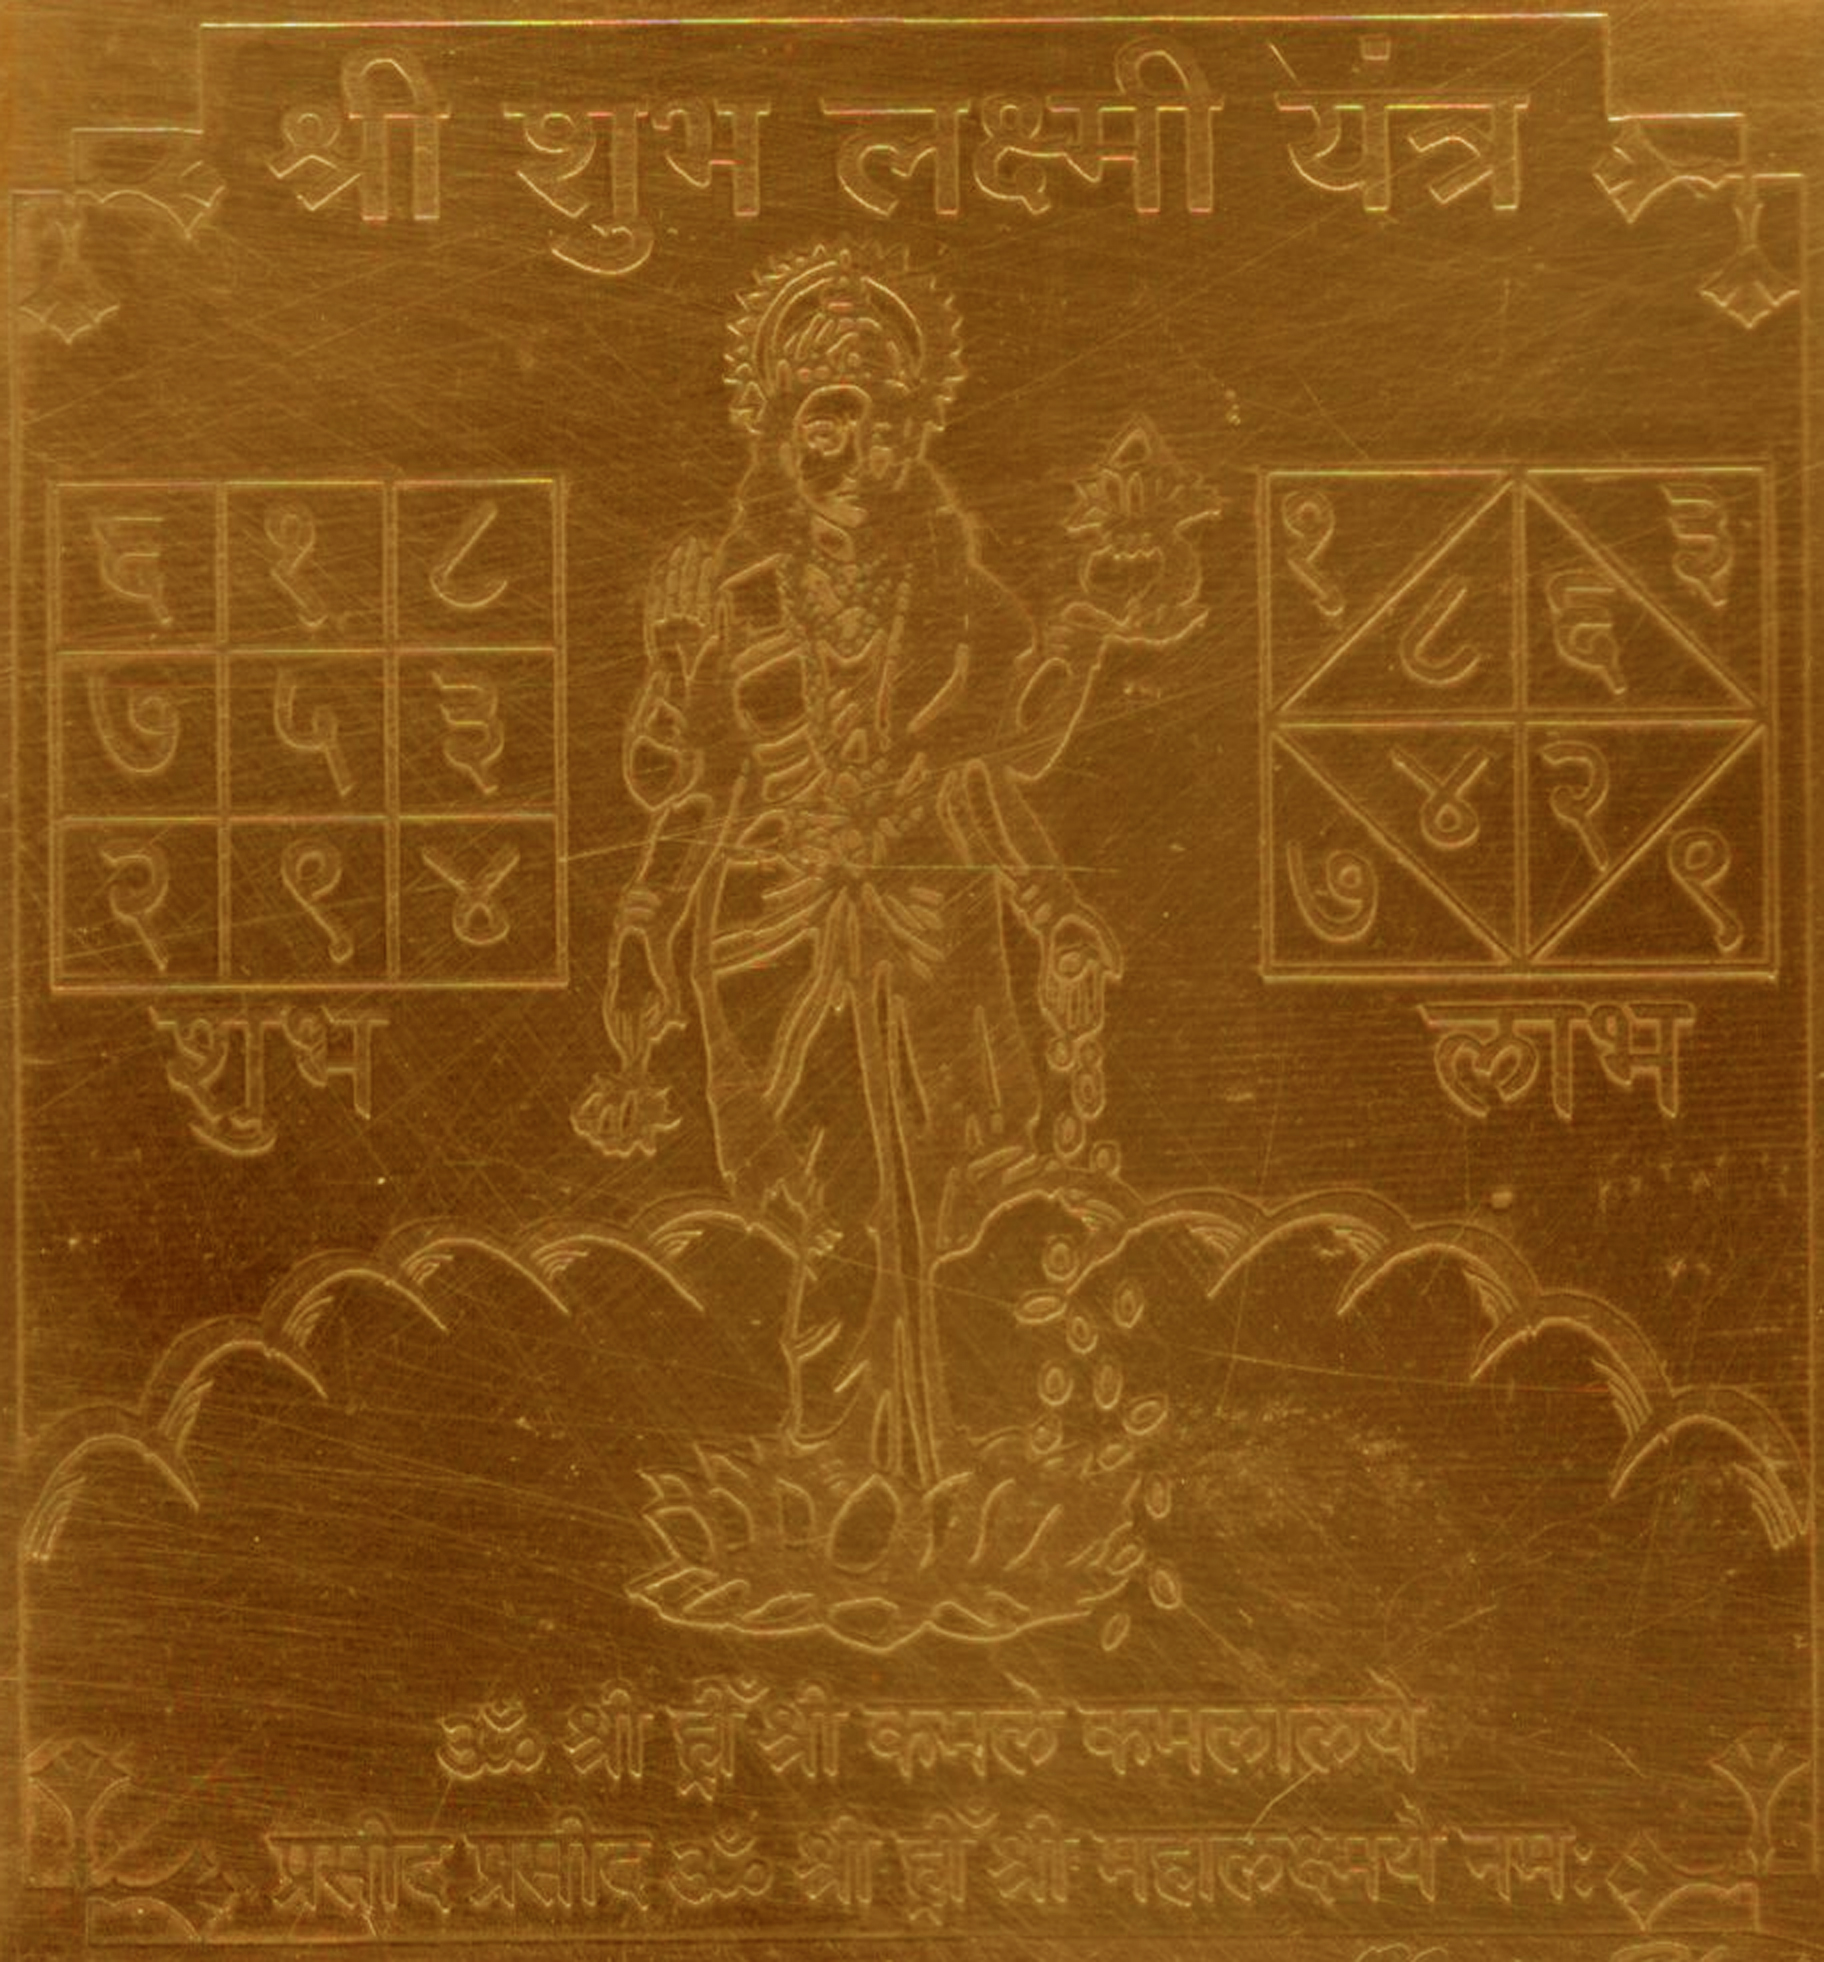 श्री शुभ लक्ष्मी यंत्र
६ १ ८
७ ५ ३
२ ९ ४
शुभ
१ ८ ६ ३
७ ४ २ ९
लाभ
ॐ श्रीं ह्रीँ श्रीं कमले कमलालये
प्रसीद प्रसीद ॐ श्रीं ह्रीँ श्रीं महालक्ष्मये नमः